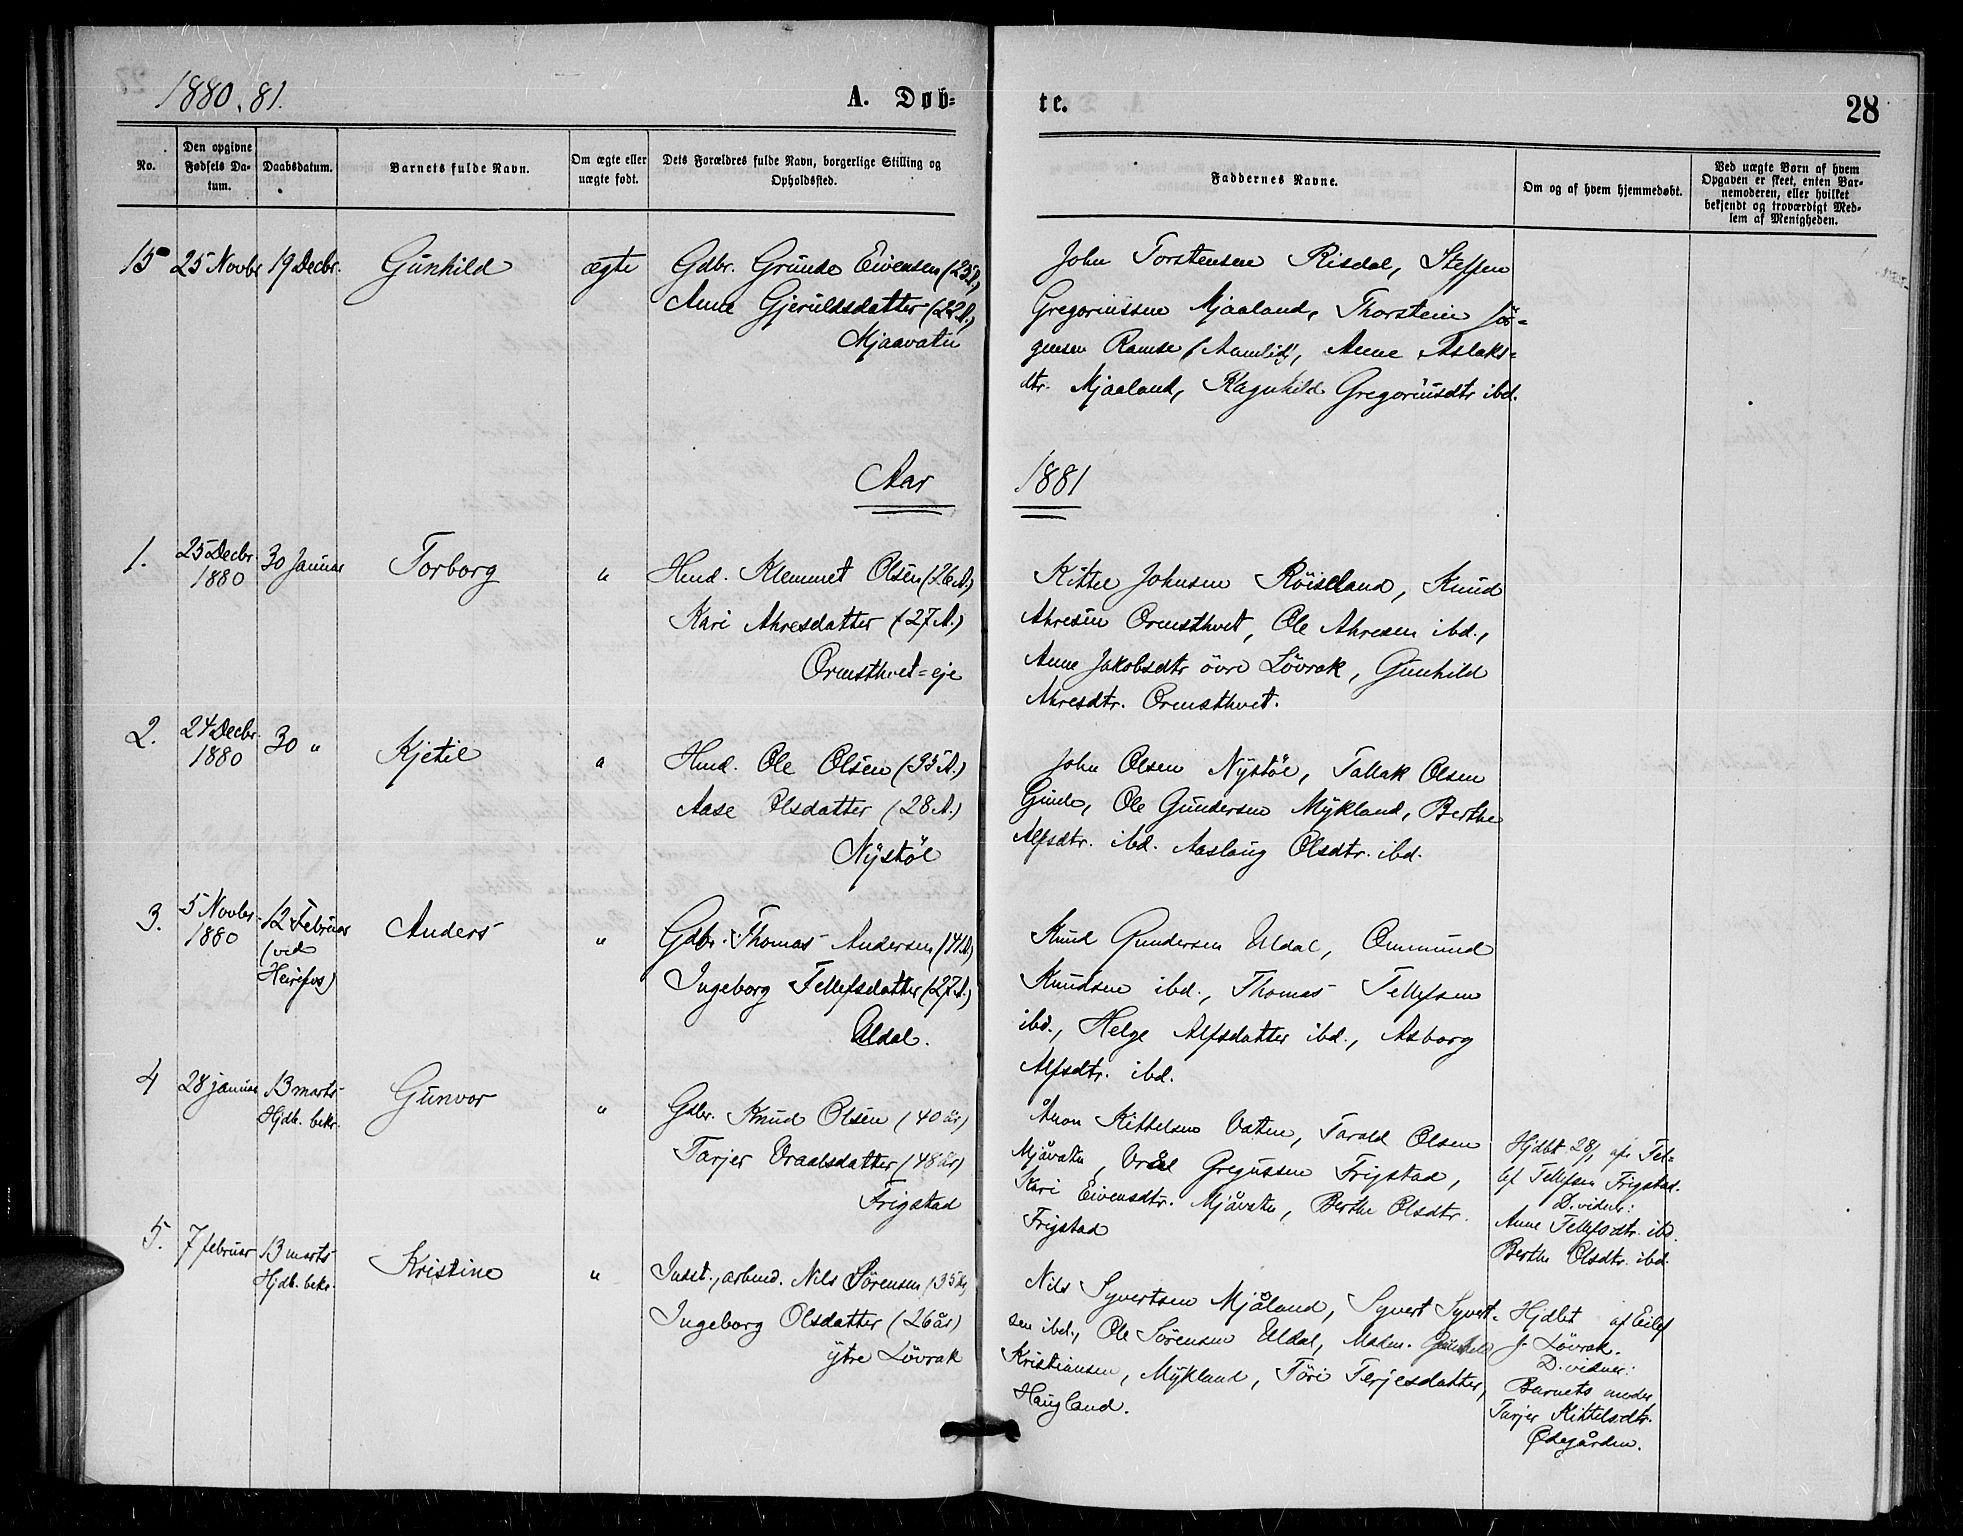 1880.81.
A. Døb=
te.
28
No.
Den opgivne
Fødsels Da-
tum.
Daabsdatum.
Barnets fulde Navn.
Om ægte eller
uægte født.
Dets Forældres fulde Navn, borgerlige Stilling og
Opholdssted.
Faddernes Navne.
Om og af hvem hjemmedøbt.
Ved uægte Børn af hvem
Opgaven er skeet, enten Bar-
nemoderen, eller hvilket
bekjendt og troværdigt Med-
lem af Menigheden.
15 25 Novbr 19 Decbr. Gunhild ægte
Gdbr. Grunde Eivensen (25A.)
Anne Gjeruldsdatter (22A.)
Mjaavatn
John Torstensen Risdal, Steffen
Gregoriussen Mjaaland, Thorstein Jör=
gensen Ramse (Aamlid), Anne Aslaks=
dtr. Mjaaland, Ragnhild Gregoriusdtr ibd.
Aar 1881
1. 25 Decbr. 1880 30 Januar Torborg "
Hmd. Klemmet Olsen (26A.)
Kari Ahresdatter (27A.)
Ormsthvet=eje
Kittel Johnsen Röiseland, Knud
Ahresen Ormsthvet, Ole Ahresen ibd.,
Anne Jakobsdtr övre Lövrak, Gunhild
Ahresdtr. Ormsthvet.
2. 24 Decbr. 1880 30 " Kjetil "
Hmd. Ole Olsen (35A.)
Aase Olsdatter (28A.)
Nystöl
John Olsen Nystöl, Tallak Olsen
Ole Gundersen Mykland, Berthe
Alfsdtr. ibd. Aaslaug Olsdtr. ibd.
3. 5 Novbr. 1880 12 Februar
(ved
Heirefos)
Anders "
Gdbr. Thomas Andersen (41A.)
Ingeborg Tellefsdatter (27A.)
Uldal.
Knud Gundersen Uldal, Ommund
Knudsen ibd., Thomas Tellefsen
ibd., Helge Alfsdatter ibd., Asborg
Alfsdtr. ibd.
4 28 januar 13 marts
Hjdb. bekr.
Gunvor "
Gdbr. Knud Olsen (40 år)
Tarjer Oraalsdatter (48 år)
Frigstad
Ånon Kittelsen Vatne, Tarald Olsen
Mjåvatn, Gregussen Frigstad,
Kari Eivensdtr. Mjåvatn, Berthe Olsdtr.
Frigstad
Hjdbt 28/1 af Tel=
lef Tellefsen Frigstad.
D.vidner:
Anne Tellefsdtr. ib.
Berthe Olsdtr. ibd.
5. 7 februar 13 marts
Hjdb. bekr.
Kristine "
Indst., arbmd. Nils Sörensen (35 år)
Ingeborg Olsdatter (26 år)
ytre Lövrak
Nils Syvertsen Mjåland, Syvert Syvert=
sen ibd., Ole Sörensen Uldal, Madm. Gunhild
Kristiansen, Mykland, Töri Terjesdatter,
Haugland.
Hjdbt af Eilef
J. Lövrak.
D.vidner:
Barnets moder
Tarjer Kittelsdtr.
Ødegården.